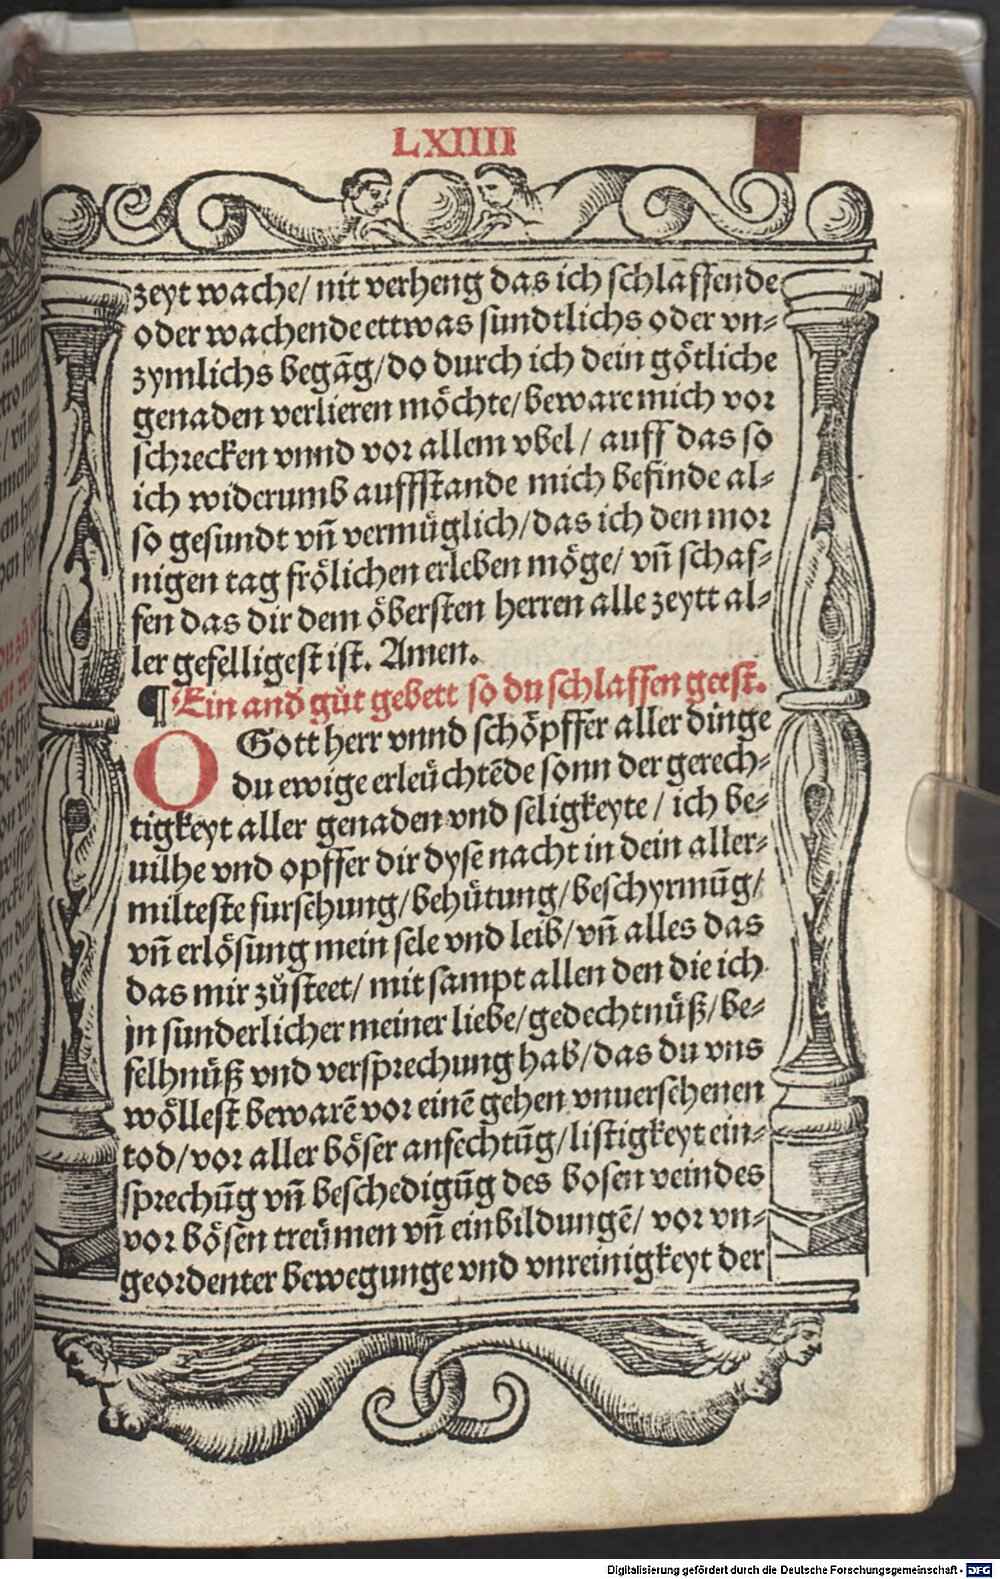 LXIIII
zeyt wache/ nit verheng das ich schlaffende
oder wachende ettwas sundtlichs oder vn⸗
zymlichs begāg/ do durch ich dein götliche
genaden verlieren möchte/ beware mich vor
schrecken vnnd vor allem vbel/ auff das so
ich widerumb auffstande mich befinde al⸗
so gesundt vñ vermüglich/ das ich den mor
nigen tag frölichen erleben möge/ vñ schaf⸗
fen das dir dem öbersten herren alle zeytt al⸗
ler gefelligest ist. Amen.
¶ Ein and̄ gůt gebett so du schlaffen geest.
O Gott herr vnnd schöpffer aller dinge
du ewige erleüchtēde sonn der gerech⸗
tigkeyt aller genaden vnd seligkeyte/ ich be⸗
uilhe vnd opffer dir dyse nacht in dein aller⸗
milteste fursehung/ behütung/ beschyrmūg/
vñ erlösung mein sele vnd leib/ vñ alles das
das mir zůsteet/ mit sampt allen den die ich
jn sunderlicher meiner liebe/ gedechtnüß/ be⸗
felhnüß vnd versprechung hab/ das du vns
wöllest bewarē vor einē gehen vnuersehenen
tod/ vor aller böser anfechtūg/ listigkeyt ein⸗
sprechūg vñ beschedigūg des bosen veindes
vor bösen treümen vñ einbildungē/ vor vn⸗
geordenter bewegunge vnd vnreinigkeyt der
Digitalisierung gefördert durch die Deutsche Forschungsgemeinschaft - DFG